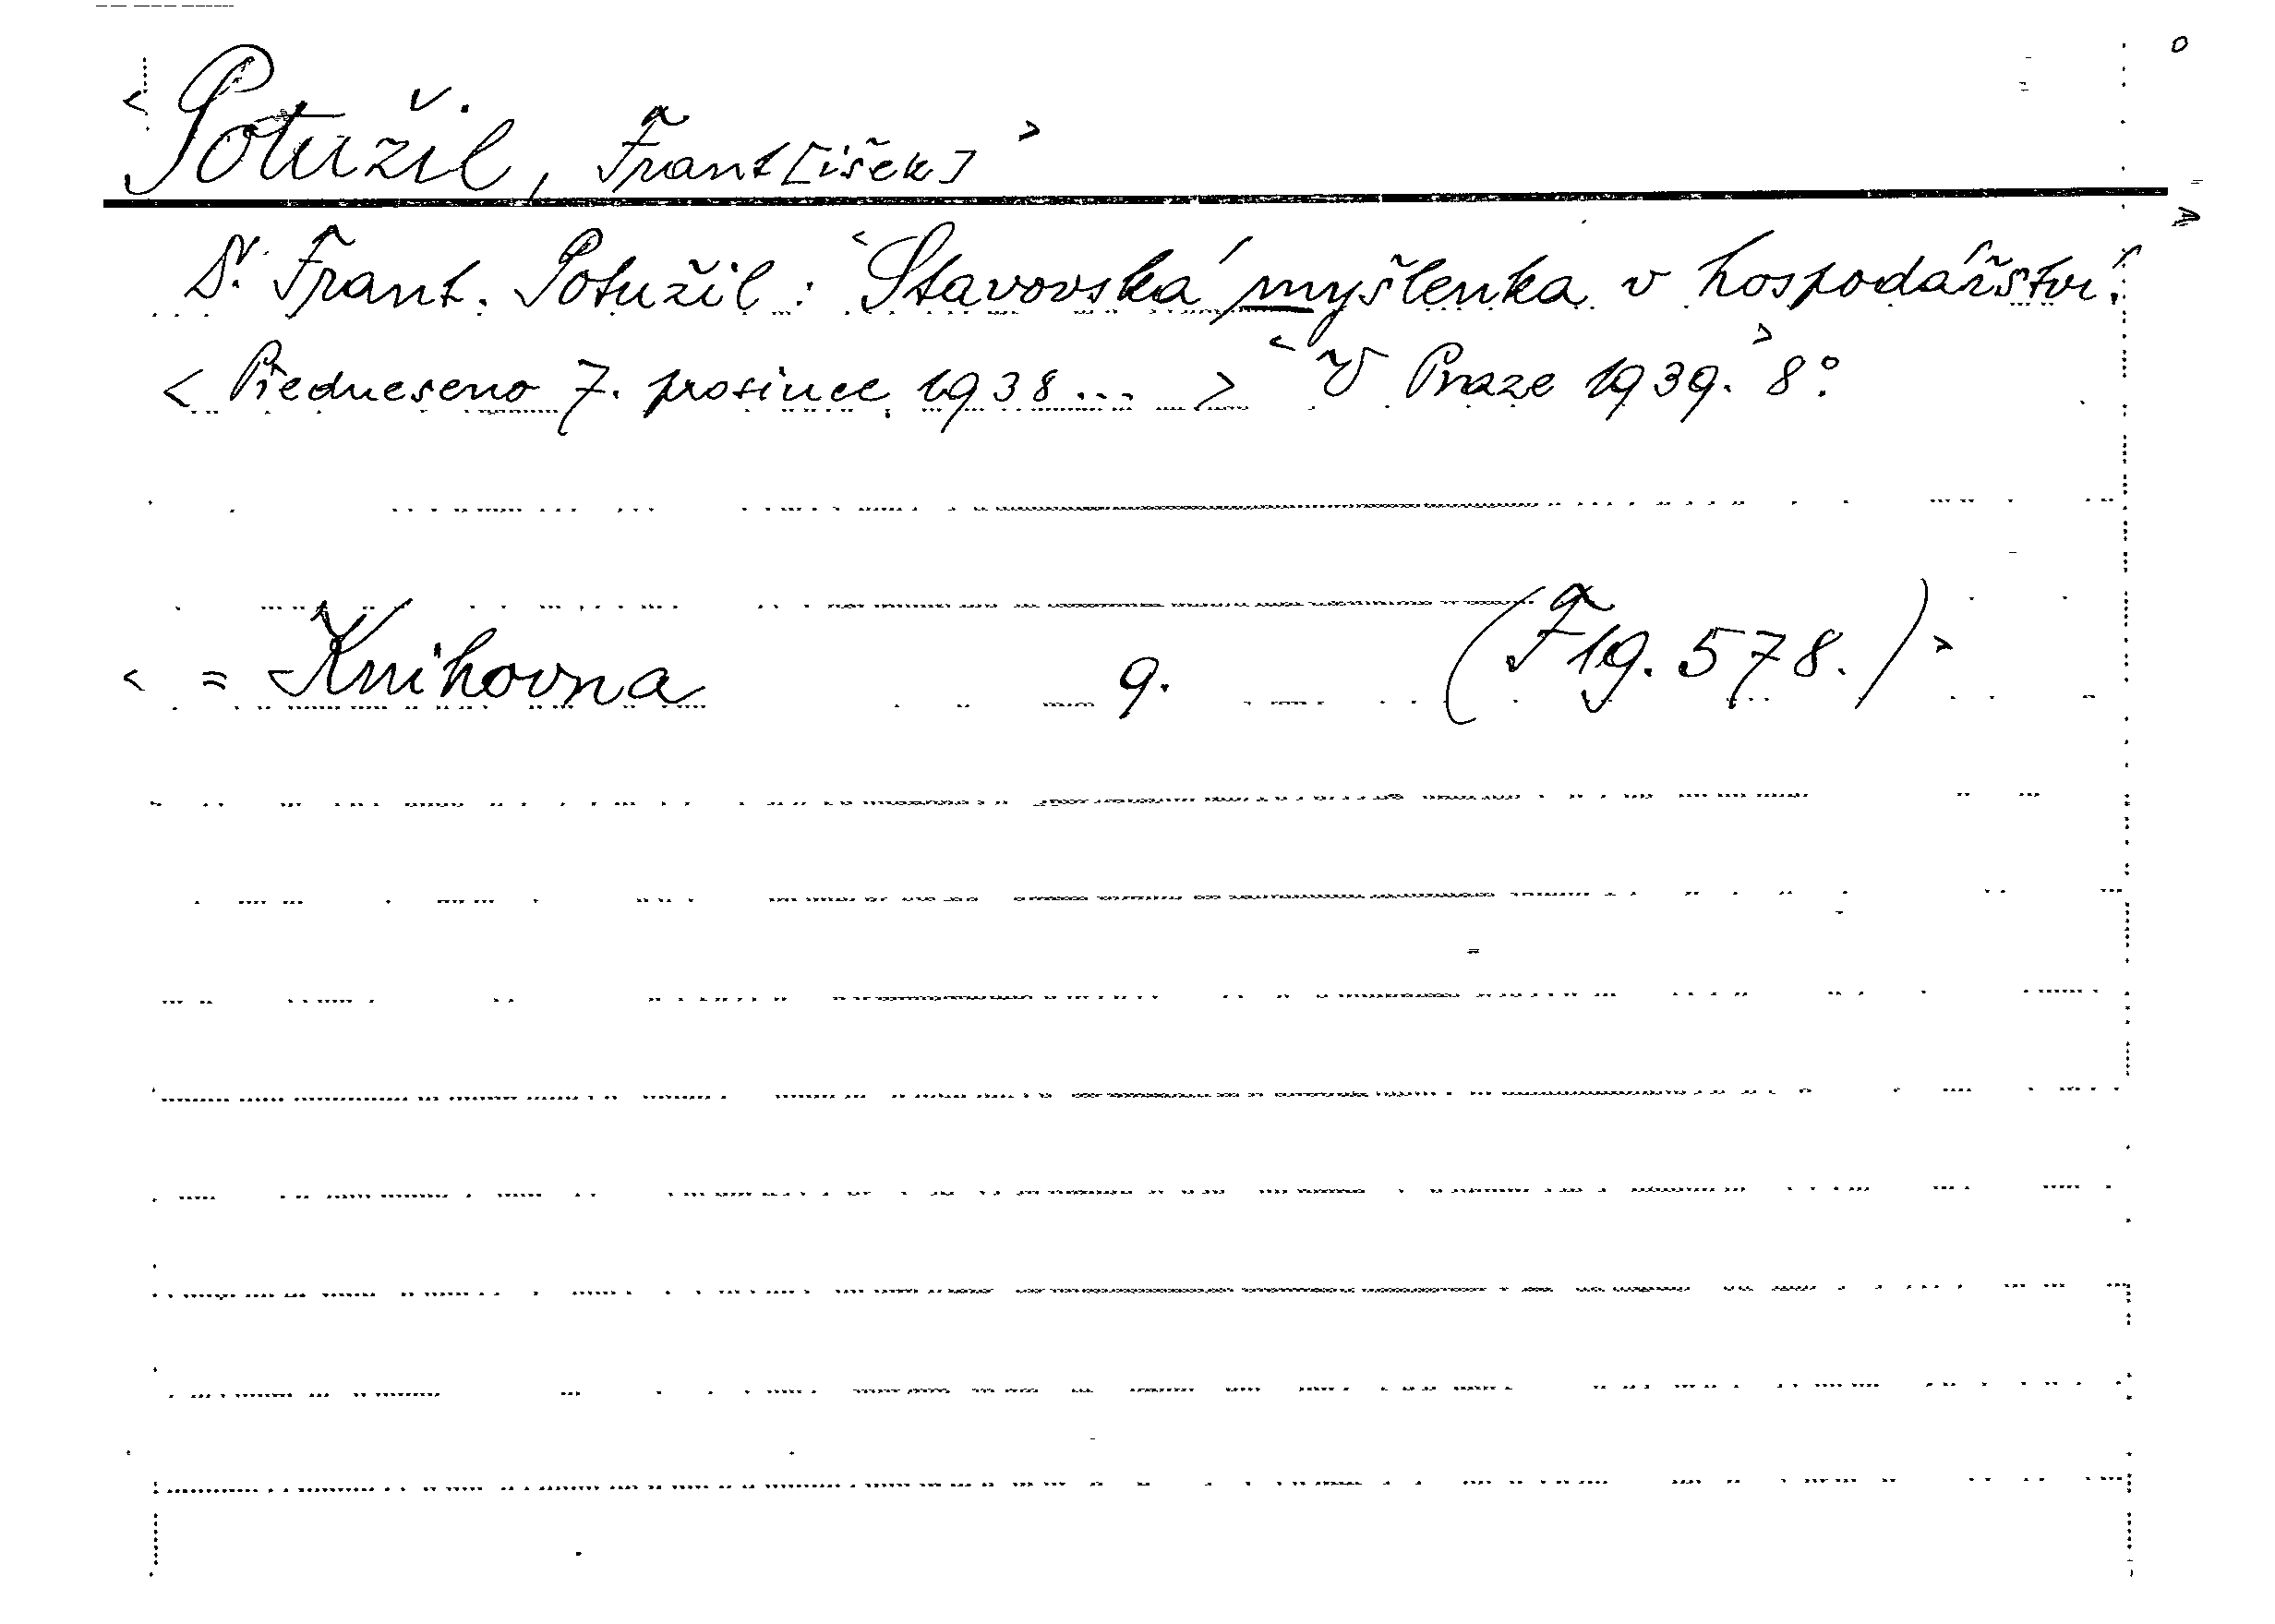 < Potužil, Frant[išek] >
Dr. Frant. Potužil: < Stavovská myšlenka v hospodářství. >
< Předneseno 7. prosince 1938 ... > < V Praze 1939. > 8°.
< = Knihovna 9. (F 19.578.) >